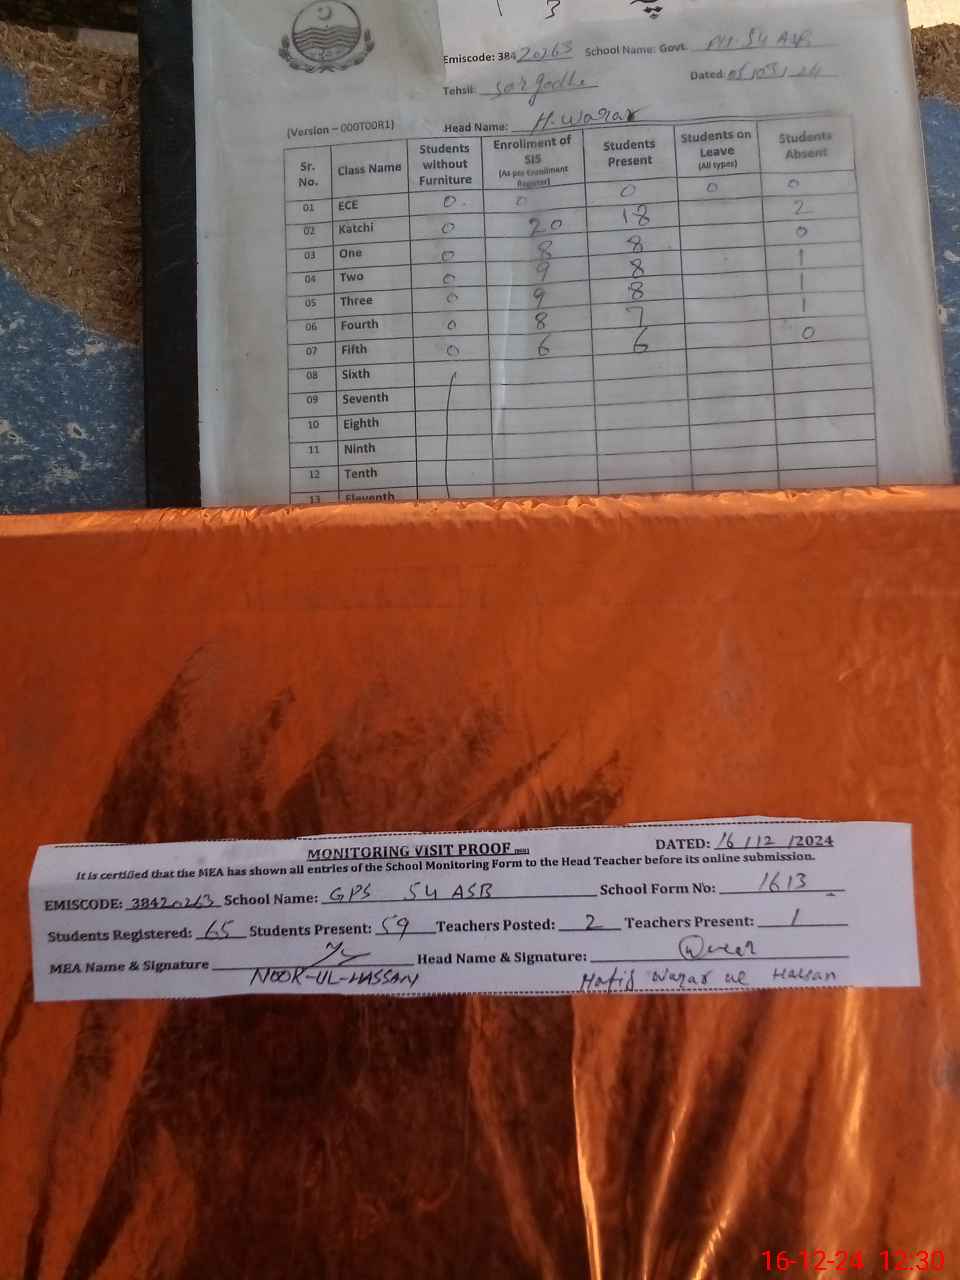 Emiscode: 38420263 School Name: Govt. 54 ASB
Tehsil: Sargodha Dated: 05/03/24
(Version – 000T00R1) Head Name: H. Waqar
Sr. No. Class Name Students without Furniture Enrollment of SIS (As per Enrollment Register) Students Present Students on Leave (All types) Students Absent
01 ECE 0 0 0 0 0
02 Katchi 0 20 18 2
03 One 0 8 8 0
04 Two 0 9 8 1
05 Three 0 9 8 1
06 Fourth 0 8 7 1
07 Fifth 0 6 6 0
08 Sixth
09 Seventh
10 Eighth
11 Ninth
12 Tenth
13 Eleventh
MONITORING VISIT PROOF DATED: 16/12/2024
It is certified that the MEA has shown all entries of the School Monitoring Form to the Head Teacher before its online submission.
EMISCODE: 38420263 School Name: GPS 54 ASB School Form No: 1613
Students Registered: 65 Students Present: 59 Teachers Posted: 2 Teachers Present: 1
MEA Name & Signature Head Name & Signature:
NOOR-UL-HASSAN Hafiz Waqar ul Hassan
16-12-24 12:30